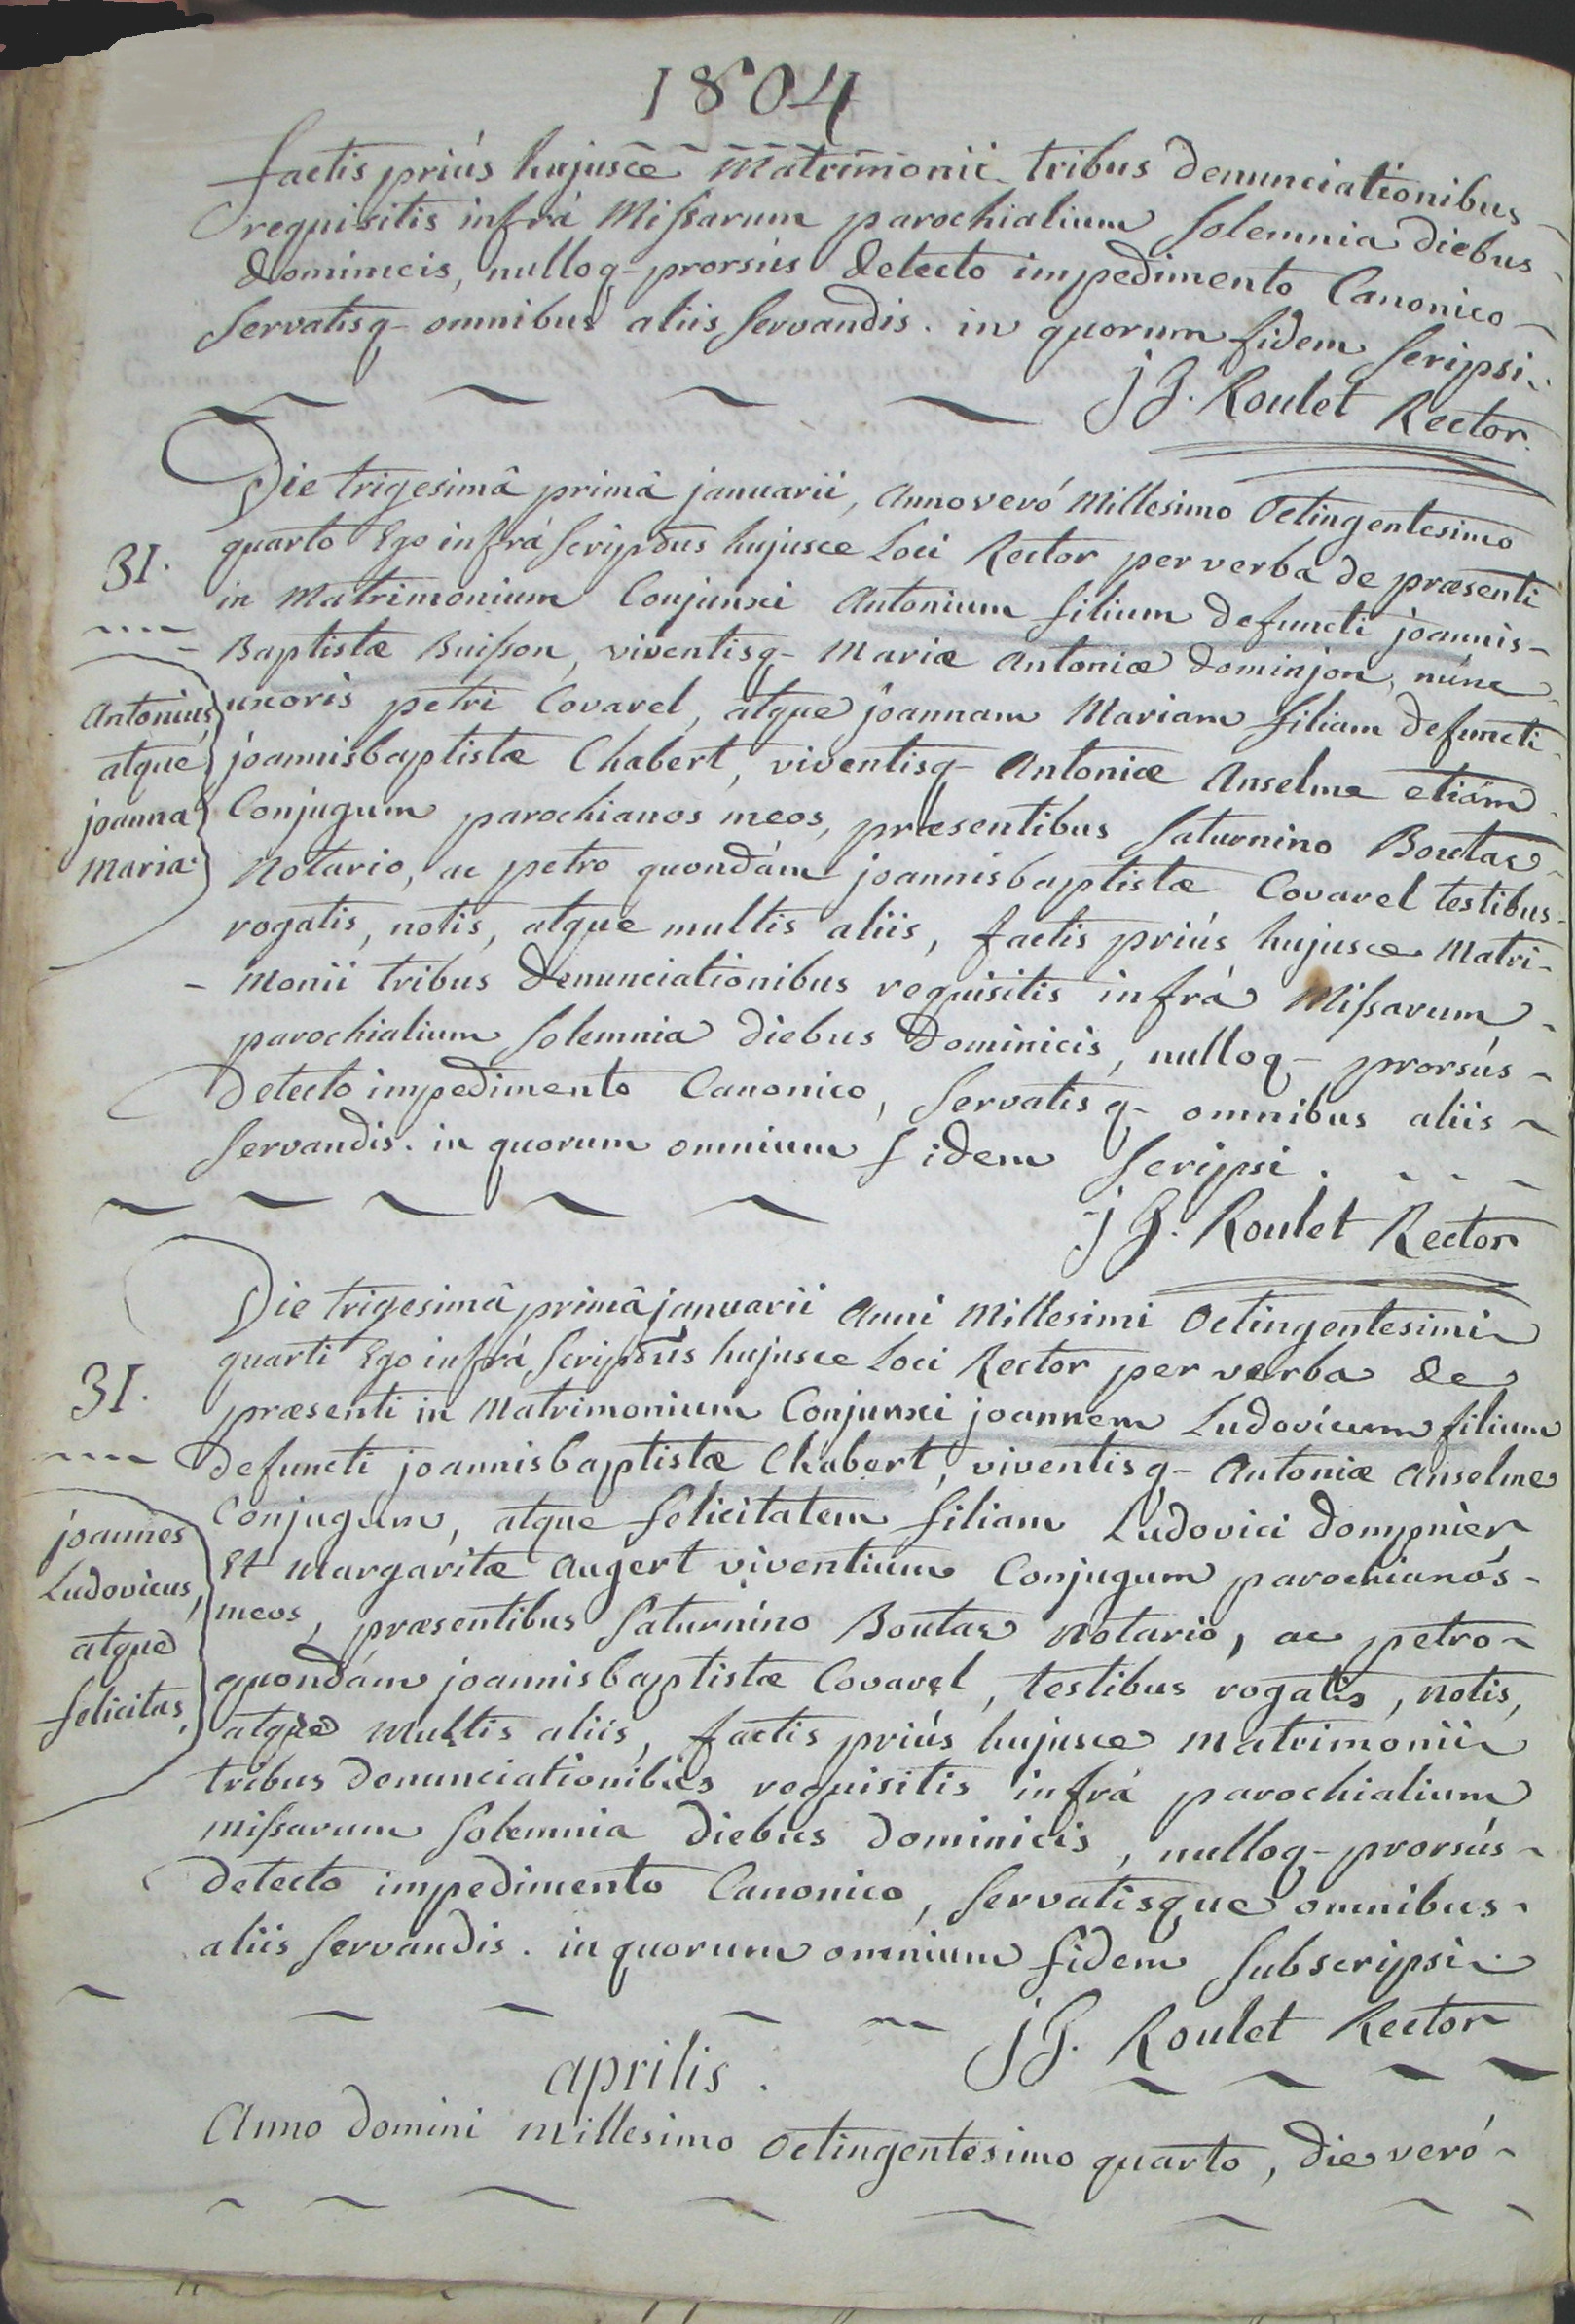 1804
factis priús hujusce Matrimonii tribus denunciationibus
requisitis infrá Missarum parochialium solemnia diebus
dominicis, nulloq- prorsús detecto impedimento Canonico
servatisq- omnibus aliis servandis. in quorum fidem scripsi.
j G. Roulet Rector.
Die trigesimâ primâ januarii, anno veró Millesimo Octingentesimo
31.
quarto Ego infrá scriptus hujusce Loci Rector per verba de præsenti
in Matrimonium Conjunxi Antonium filium defuncti joannis-
Baptistæ Buisson, viventisq- Mariæ Antoniæ dominjon, núnc
Antonius,
atque
joanna
Maria.
uxoris petri Covarel, atque joannam Mariam filiam defuncti
joannisbaptistæ Chabert, viventisq- Antoniæ Anselme etiám
Conjugum parochianos meos, præsentibus saturnino Boutaz
Notario, ac petro quondám joannisbaptistæ Covarel testibus
rogatis, notis, atque multis aliis, factis priús hujusce Matri-
- monii tribus denunciationibus requisitis infrá Missarum
parochialium solemnia diebus dominicis, nulloq- prorsús
detecto impedimento Canonico, servatisq- omnibus aliis
servandis. in quorum omnium fidem scripsi.
j G. Roulet Rector
Die trigesimâ primâ januarii anni Millesimi Octingentesimi
31.
quarti Ego infrá scriptus hujusce Loci Rector per verba de
præsenti in Matrimonium Conjunxi joannem Ludovicum filium
defuncti joannisbaptistæ Chabert, viventisq- Antoniæ Anselme
joannes
Ludovicus,
atque
felicitas,
Conjugum, atque felicitatem filiam Ludovici dompnier
Et Margaritæ Augert viventium Conjugum parochianos
meos, præsentibus saturnino Boutaz Notario, ac petro
quondám joannisbaptistæ Covarel, testibus rogatis, notis,
atque multis aliis, factis priús hujusce Matrimonii
tribus denunciationibus requisitis infrá parochialium
missarum solemnia diebus dominicis, nulloq- prorsús
detecto impedimento Canonico, servatisque omnibus
aliis servandis. in quorum omnium fidem subscripsi.
j G. Roulet Rector
aprilis.
Anno domini Millesimo Octingentesimo quarto, die veró